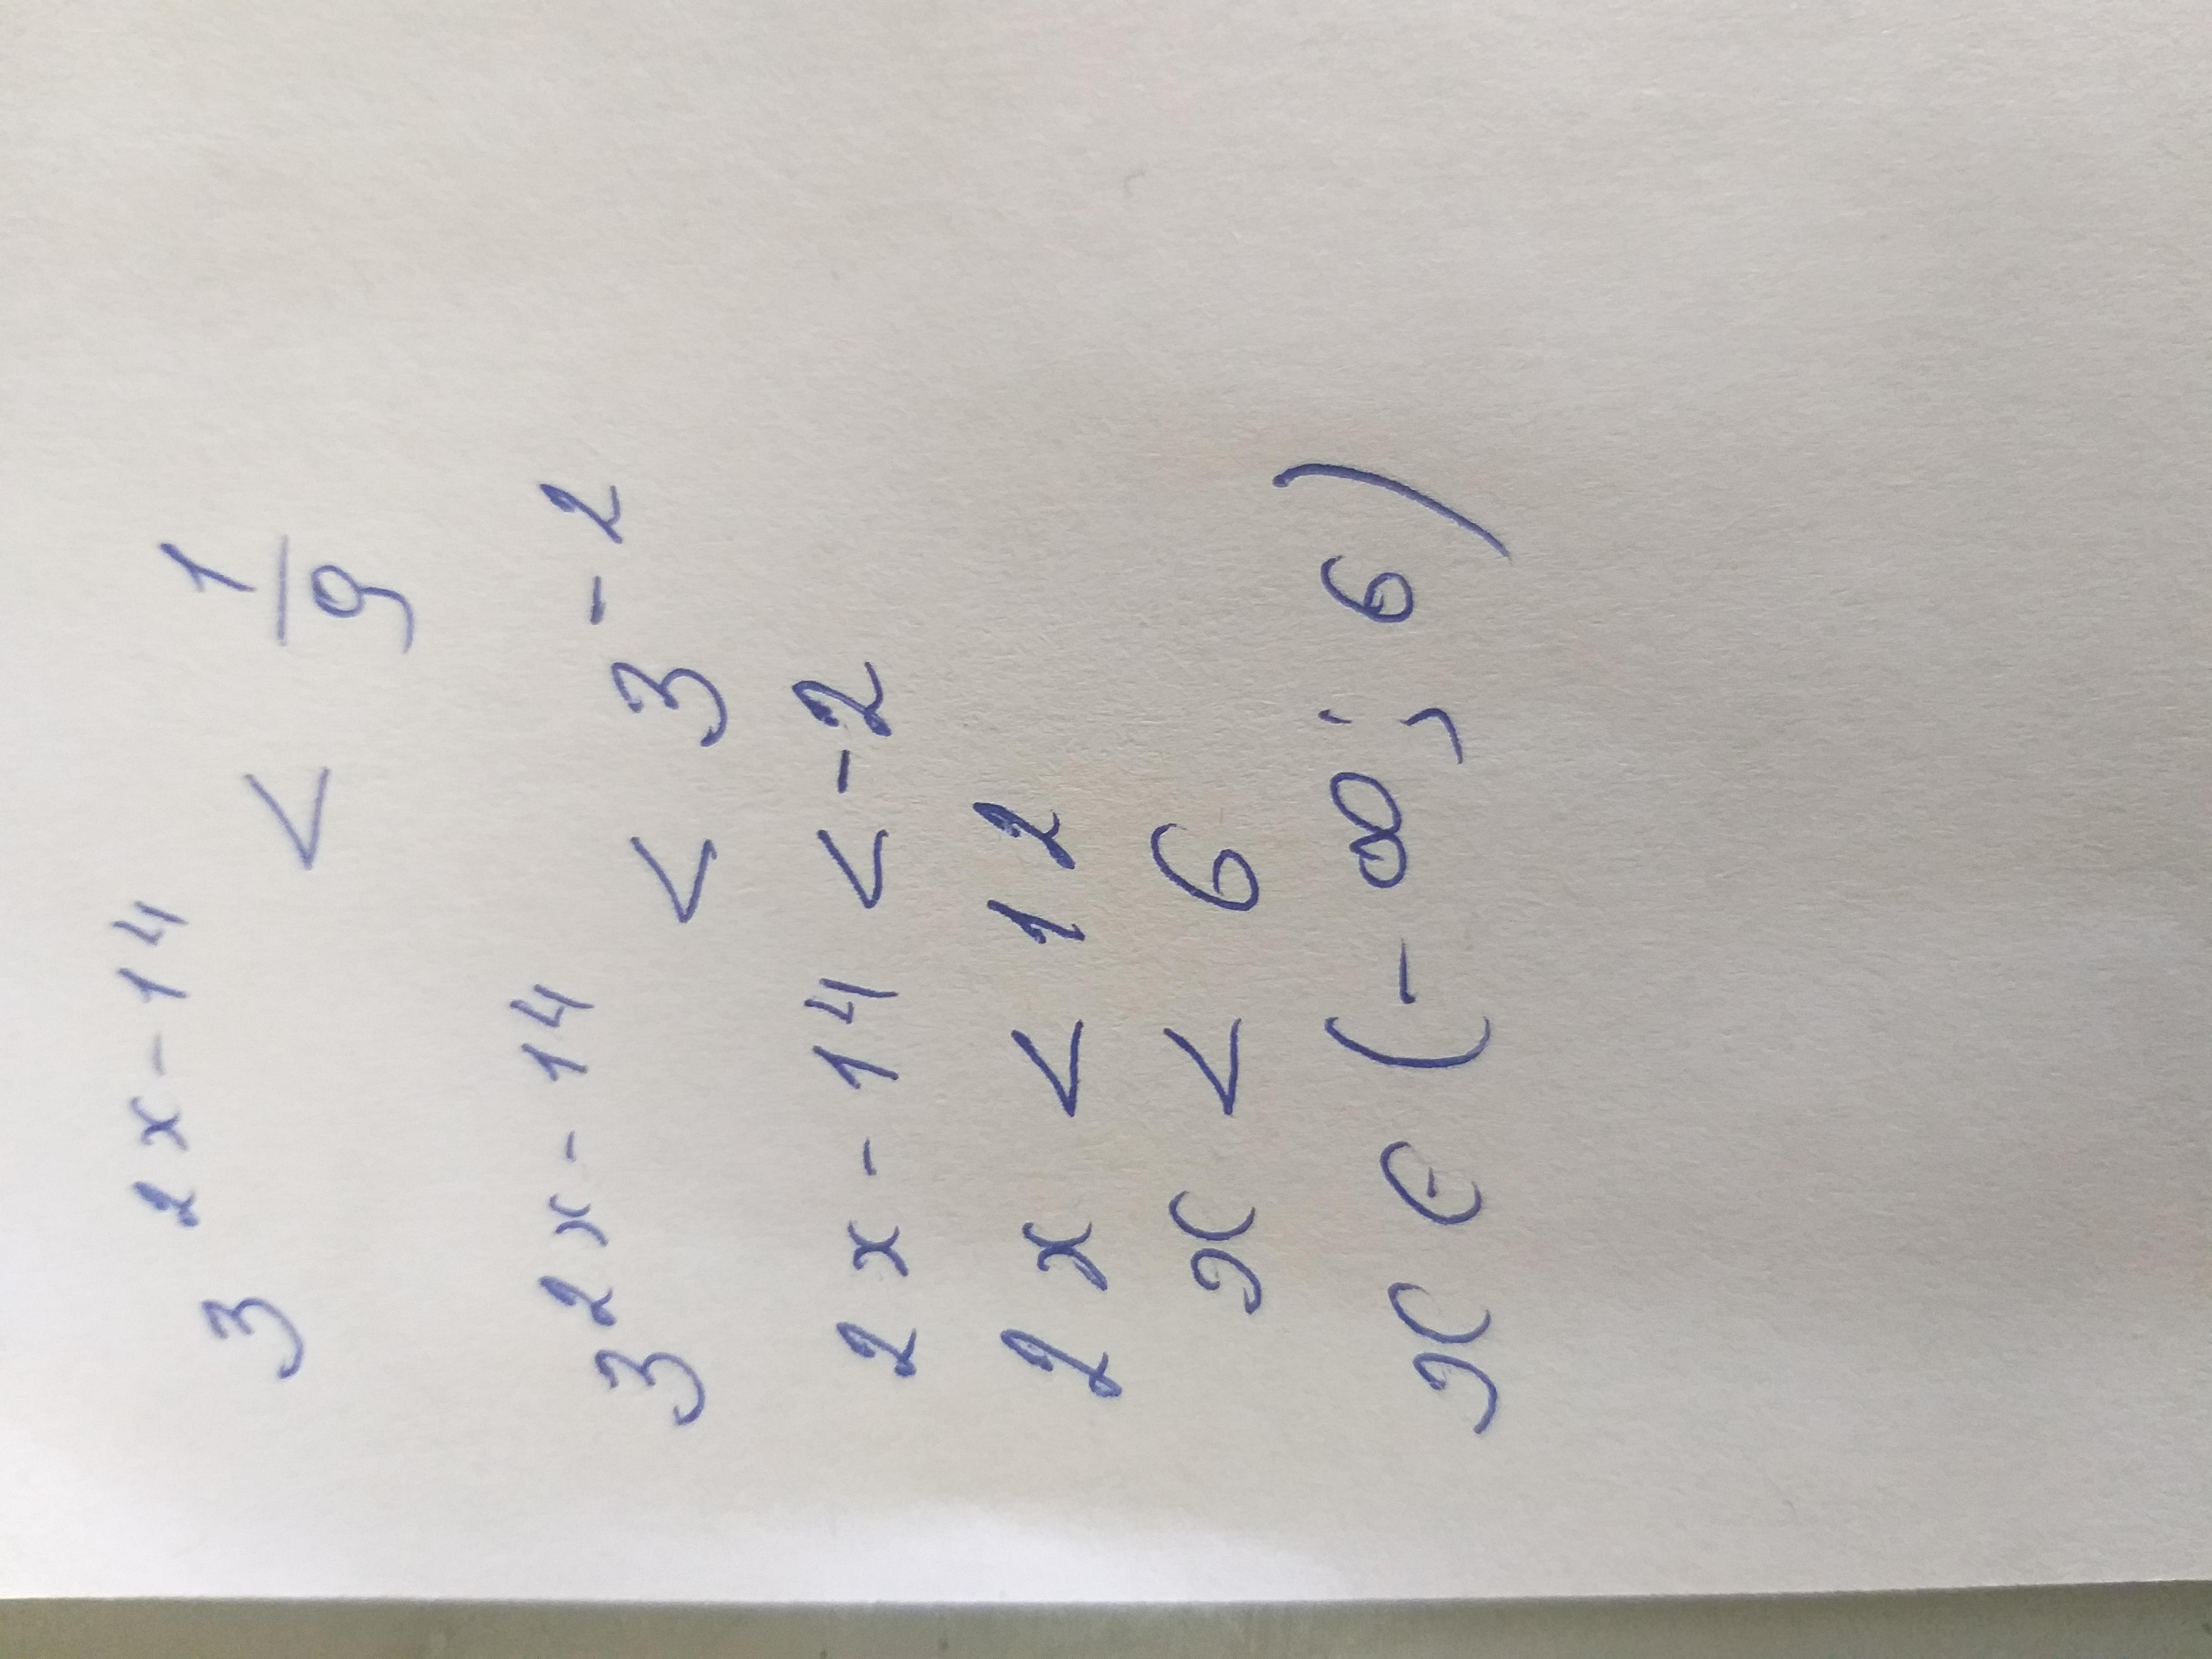 3^{2x-14} < \frac{1}{9}
3^{2x-14} < 3^{-2}
2x-14 < -2
2x < 12
x < 6
x ∈ (-∞; 6)